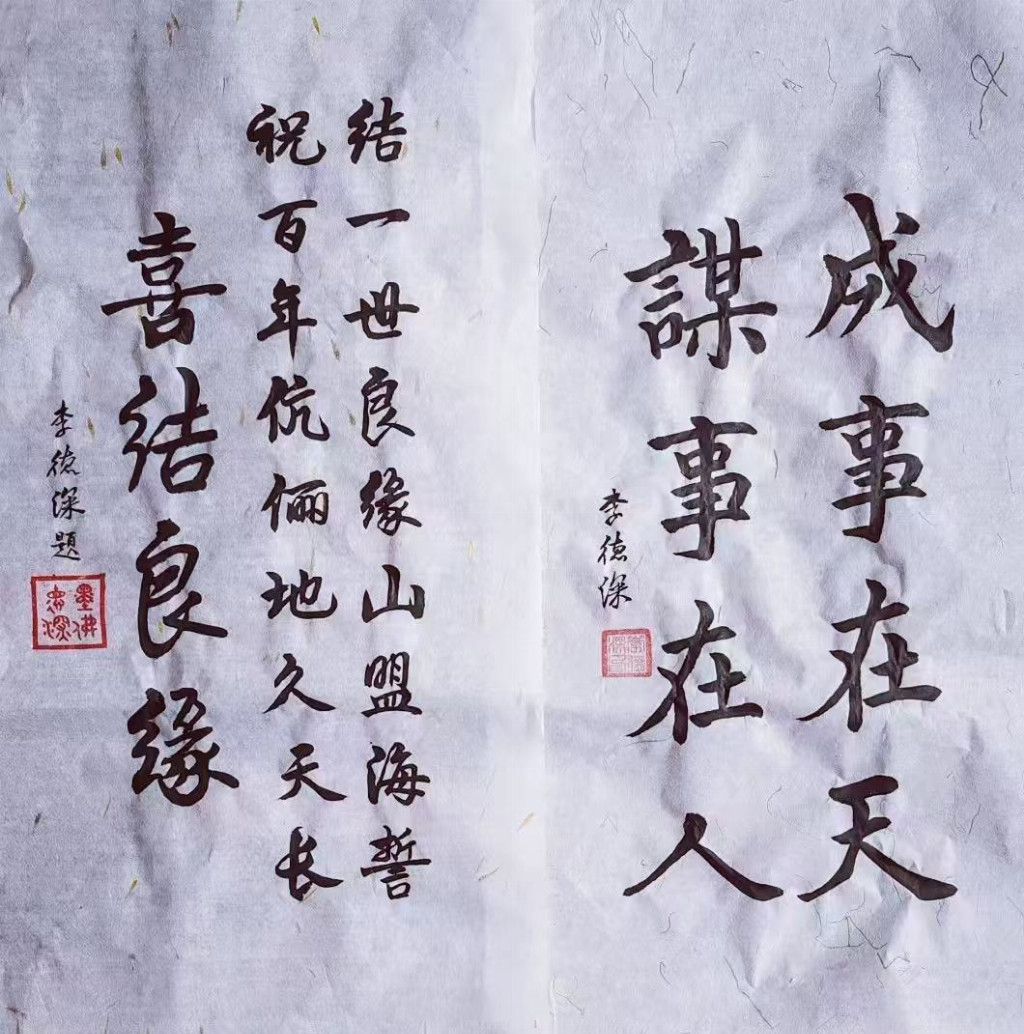 成事在天
謀事在人
李德深
结一世良缘山盟海誓
祝百年伉俪地久天长
喜结良缘
李德深题